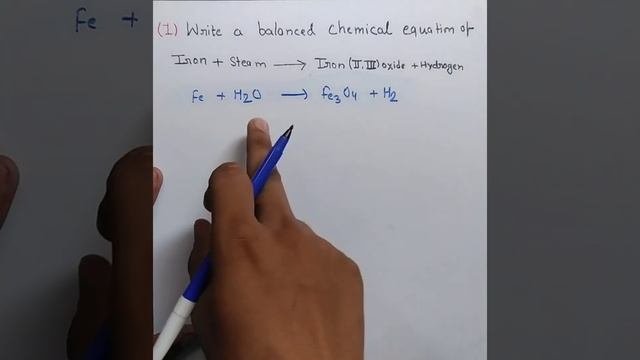 Fe +
(1) Write a balanced chemical equation of
Iron + Steam ⟶ Iron (II, III) oxide + Hydrogen
Fe + H₂O ⟶ Fe₃O₄ + H₂